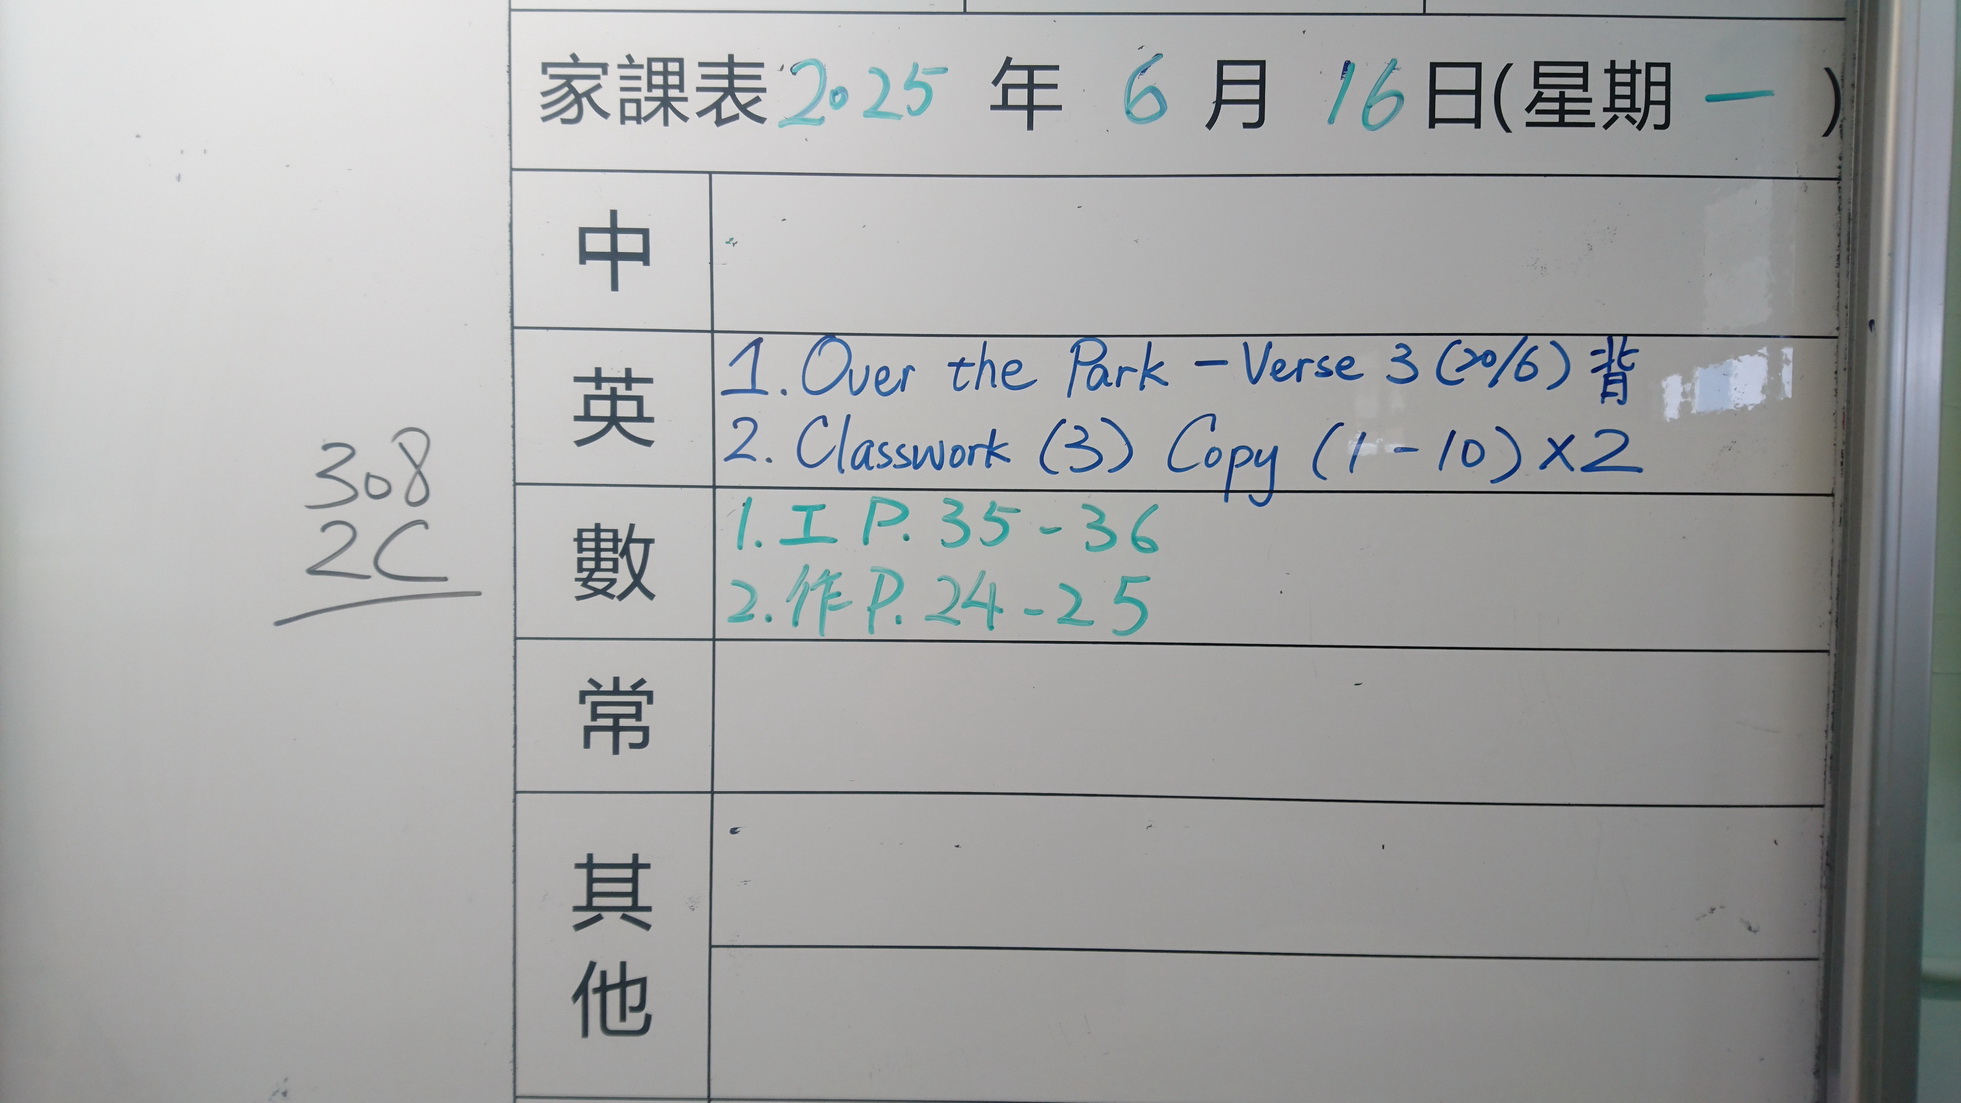 家課表 2025 年 6 月 16 日(星期 一 )
中
英
1. Over the Park - Verse 3 (20/6) 背
2. Classwork (3) Copy (1-10) ×2
數
1. 工 P. 35-36
2. 作 P. 24-25
常
其
他
308
2C